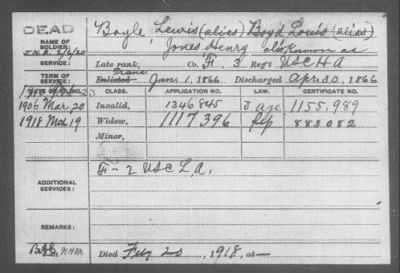 DEAD
NAME OF SOLDIER:
Boyle Lewis (alias) Boyd Louis (alias)
Jones, Henry also known as
SERVICE:
Late rank, Co. F. 3 Reg't USCHA
TERM OF SERVICE:
Trans. Enlisted Jan 1, 1866 Discharged Apr 30, 1866
DATE OF FILING.
CLASS.
APPLICATION NO.
LAW.
CERTIFICATE NO.
1906 Mar 20
Invalid,
1346845
J age
1155,989
1918 Mch 19
Widow,
1117396
883082
Minor,
ADDITIONAL SERVICES:
F - 2 USC L.A.
REMARKS:
Died Feby 20, 1918, at —